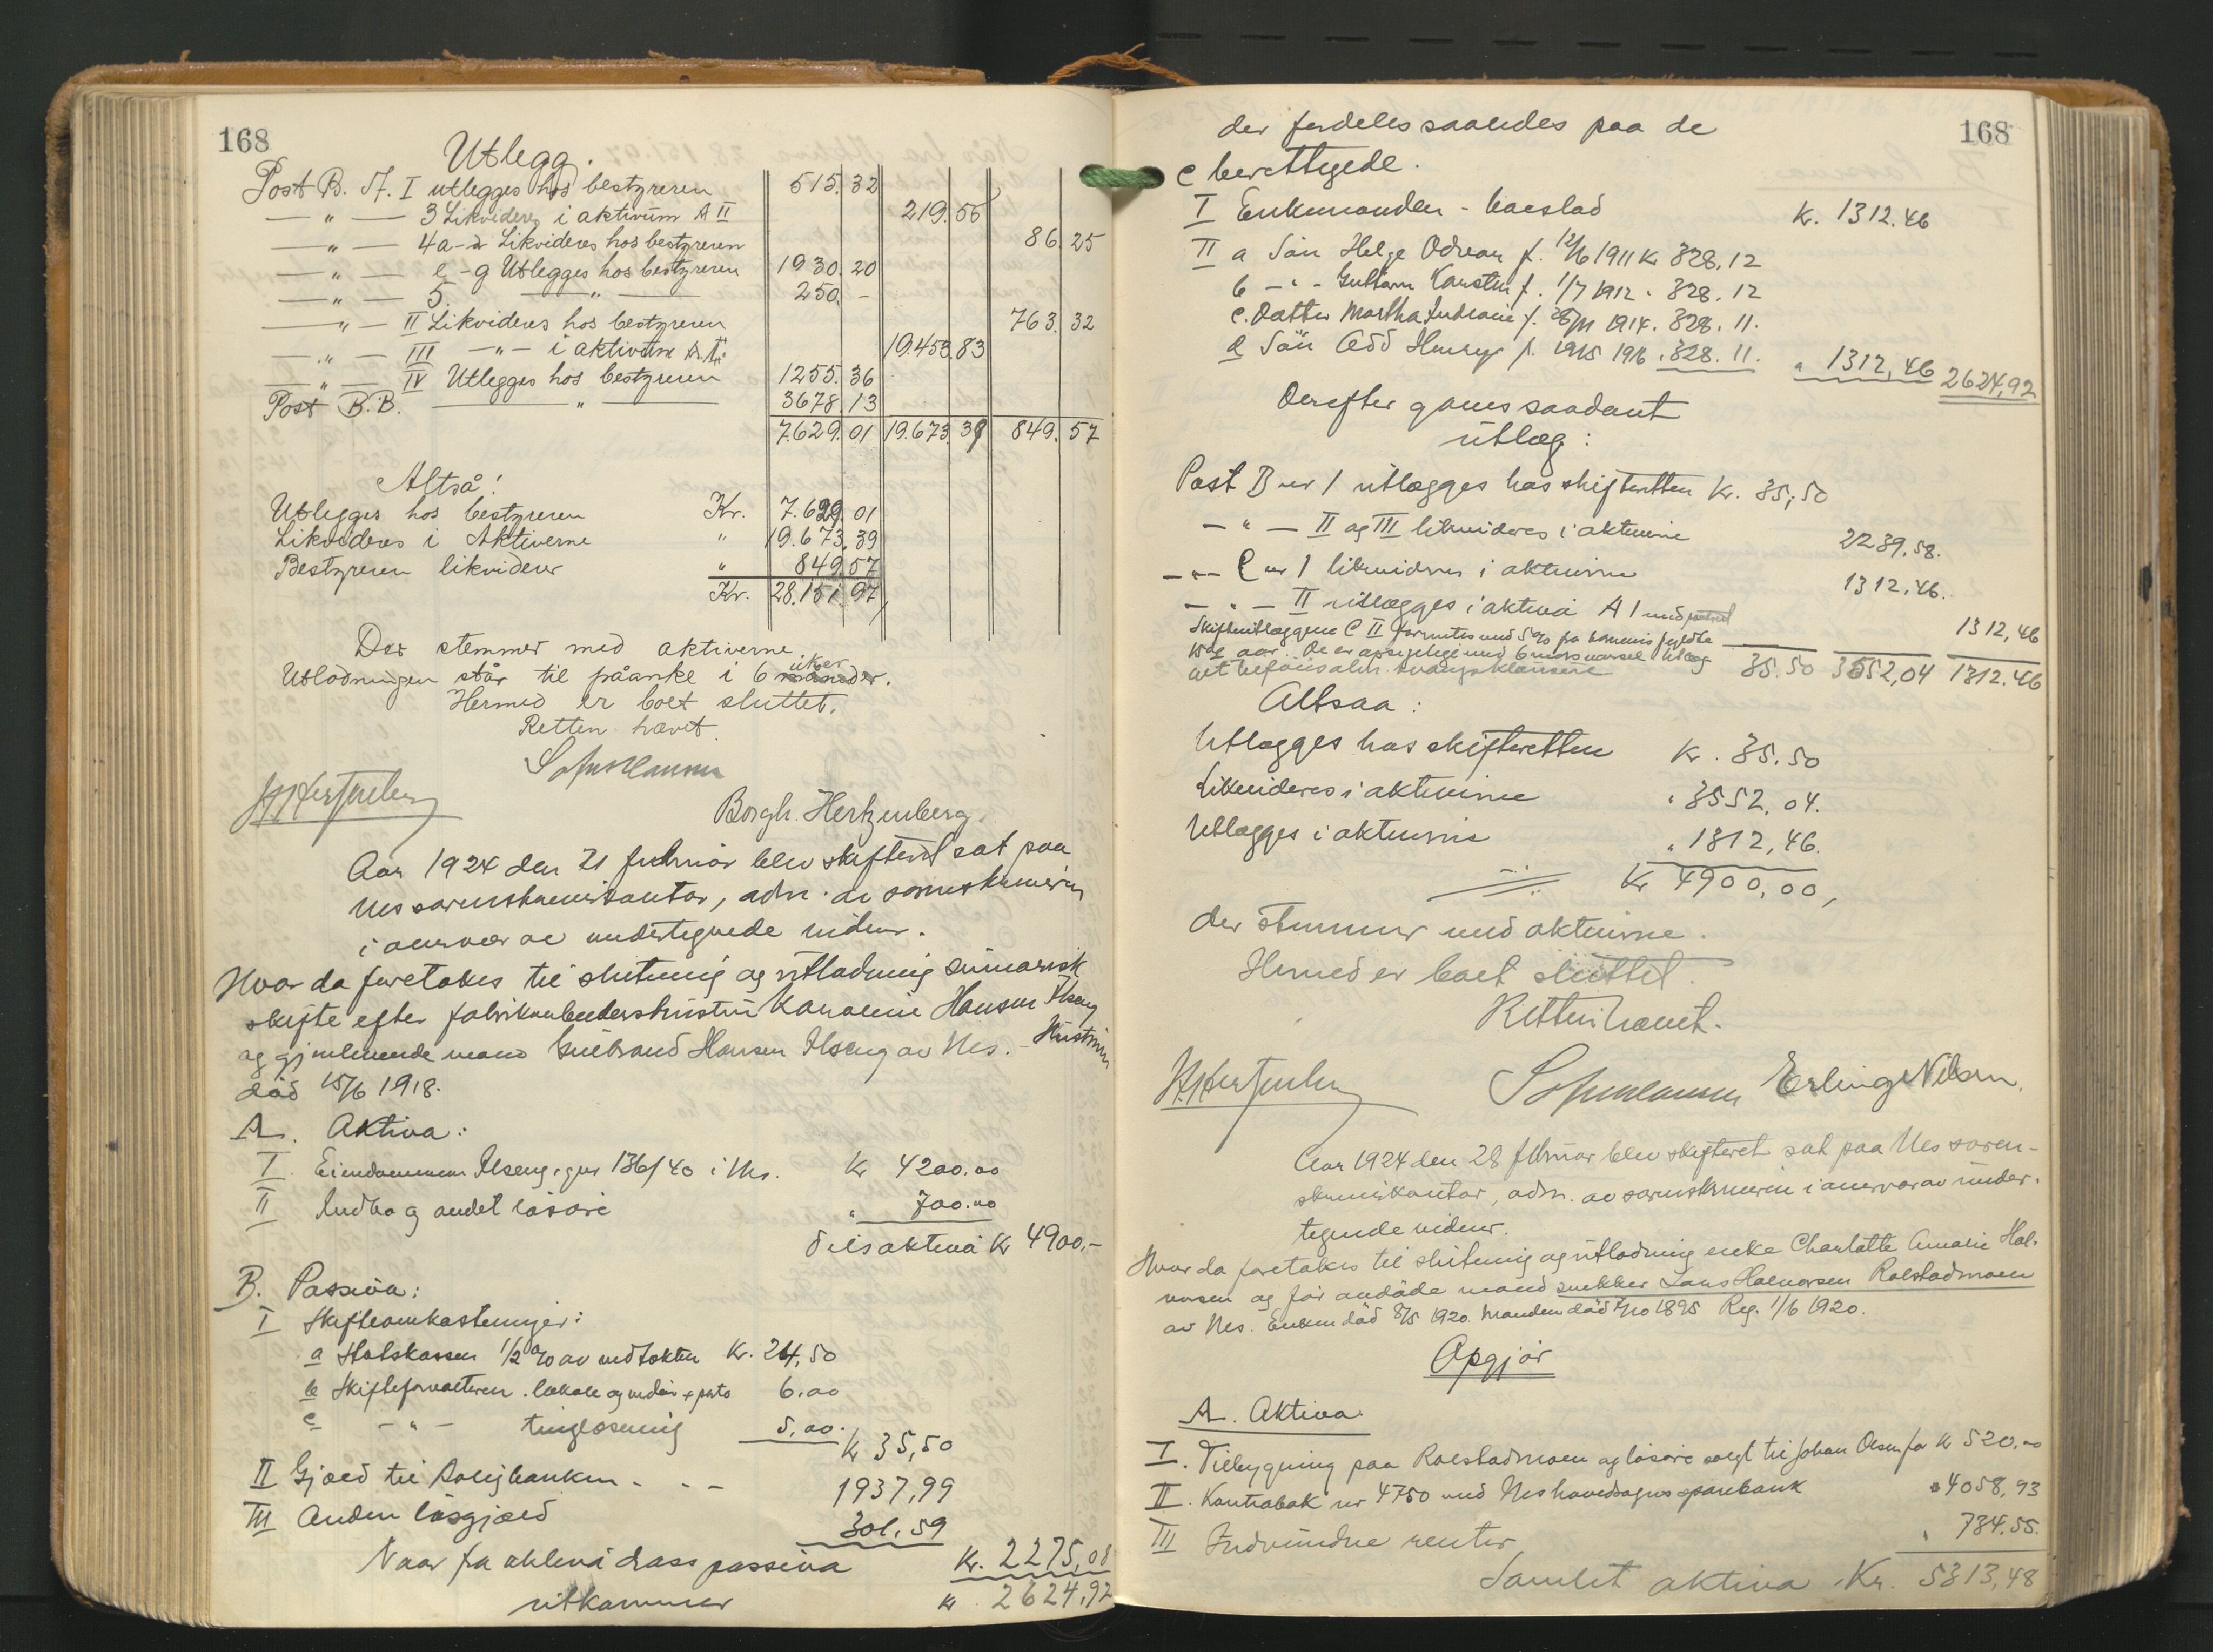 168
Utlegg.
Post B. A. I utlegges hos bestyreren 515.32
— " — 3 Likvideres i aktivum A II 219.56
— " — 4a-d Likvideres hos bestyreren 86.25
— " — e-g Utlegges hos bestyreren 1930.20
— " — 5. — " — 250.-
— " — II Likvideres hos bestyreren 763.32
— " — III — " — i aktivum A.I. 19.453.83
— " — IV Utlegges hos bestyreren 1255.36
Post B.B. — " — 3678.13
7.629.01 19.673.39 849.57
Altså!
Utlegges hos bestyreren Kr. 7.629.01
Likvideres i Aktiverne " 19.673.39
Bestyreren likviderer " 849.57
Kr. 28.151.97
Der stemmer med aktiverne
Utlodningen står til påanke i 6 uker.
Hermed er boet sluttet.
Retten hævet.
Borgh. Hertzenberg.
Aar 1924 den 21 februar blev skifteret sat paa
Nes sorenskriverkontor, adm. av sorenskriveren
i overvær av undertegnede vidner.
Hvor da foretokes til slutning og utlodning sumarisk
skifte efter fabrikarbeiderhustru Karoline Hansen Ilseng
og gjenlevende mand Gulbrand Hansen Ilseng av Nes. - Hustruen
död 15/6 1918.
A. Aktiva:
I Eiendommen Ilseng, gnr 136/40 i Nes. Kr 4200.00
II Indbo og andet løsöre " 700.00
Tils aktiva Kr 4900,-
B. Passiva:
I Skifteomkostninger:
a Statskassen 1/2 % av nedtokten Kr. 24,50
b Skifteforvalteren. lokale og vidner + porto 6.00
c — " — tinglæsning 5,00. Kr 35,50
II Gjæld til Boligbanken - - - 1937,99
III Anden løsgjæld 301,59
Naar fra aktiva drass passiva Kr. 2275,08
utkommer Kr. 2624,92
168
der fordeles saaledes paa de
C berettigede.
I Enkemanden - boeslod Kr. 1312.46
II a Sön Helge Odvar f. 12/6 1911 Kr 328.12
b — " — Karsten f. 1/7 1912 " 328.12
c. Datter Martha f. 1914. 328.11.
d Sön Odd Henry f. 1916. 328.11. " 1312,46 2624,92
Derefter gjøres saadant
utlæg:
Post B nr 1 utlægges hos skifteretten Kr. 35,50
— " — II og III likvideres i aktiverne 2239,58.
— " — C nr 1 likvideres i aktiverne 1312,46.
— " — II utlægges i aktiva A 1 med 1312,46
Skifteutlæggene C II forrentes med 5% fra barnets fyldte
15de aar. De er opsigelige med 6 mdrs varsel. Utlæg
35.50 3552,04 1312.46
Altsaa:
Utlægges hos skifteretten Kr. 35.50
Likvideres i aktiverne " 3552.04.
Utlægges i aktiverne " 1312,46.
Kr 4900,00,
der stemmer med aktiverne.
Hermed er boet sluttet.
Retten hævet.
Erling Nilsen.
Aar 1924 den 28 februar blev skifteret sat paa Nes soren-
skriverkontor, adm. av sorenskriveren i overvær av under-
tegnede vidner.
Hvor da foretokes til slutning og utlodning enke Charlotte Amalie Hal-
vorsen og för avdöde mand snekker Lars Halvorsen Rolstadmoen
av Nes. Enken död 8/5 1920. Manden död 7/10 1895 Reg. 1/6 1920.
Opgjör
A. Aktiva.
I. Tilbygning paa Rolstadmoen og løsøre solgt til Johan Olsen for Kr 520.00
II. Kontrabok nr 4750 med Nes hovedsogns sparebank " 4058,93
III Indvundne renter " 734.55.
Samlet aktiva Kr. 5313,48